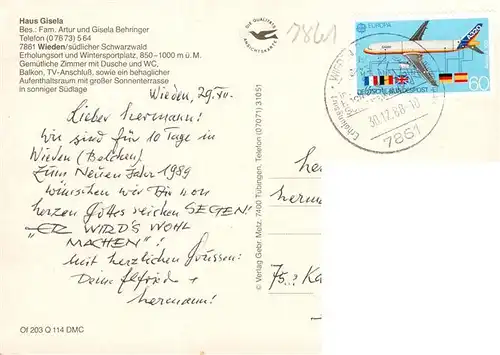 Haus Gisela
Bes.: Fam. Artur und Gisela Behringer
Telefon (0 78 73) 5 64
7861 Wieden/südlicher Schwarzwald
Erholungsort und Wintersportplatz, 850–1000 m ü. M.
Gemütliche Zimmer mit Dusche und WC,
Balkon, TV-Anschluß, sowie ein behaglicher
Aufenthaltsraum mit großer Sonnenterrasse
in sonniger Südlage
DIE QUALITÄTS
ANSICHTSKARTE
7861
EUROPA
A320
DEUTSCHE BUNDESPOST
60
30.12.88-10
7861
Wieden, 29.XII.
Lieber Hermann!
Wir sind für 10 Tage in
Wieden (Belchen)
Zum Neuen Jahr 1989
wünschen wir Dir von
herzen Gottes reichen SEGEN!
"ER WIRD'S WOHL
MACHEN"!
Mit herzlichen Grüssen:
Deine Elfriede +
Hermann!
© Verlag Gebr. Metz, 7400 Tübingen, Telefon (07071) 31051
Her
Herma
75..? Ka
Of 203 Q 114 DMC